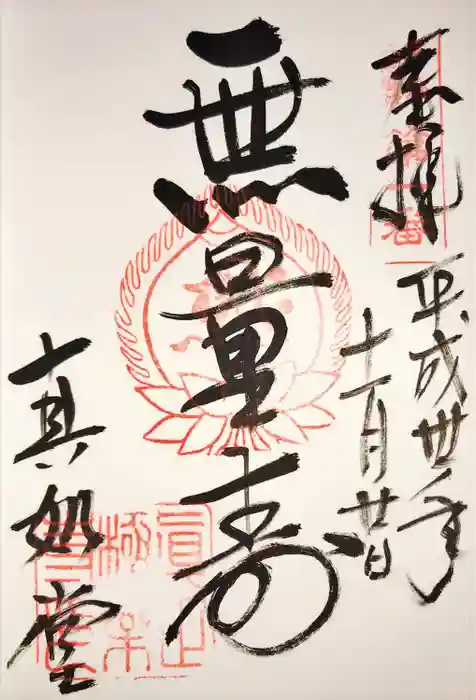 奉拝
平成卅年
十一月廿日
無量寿
真如堂